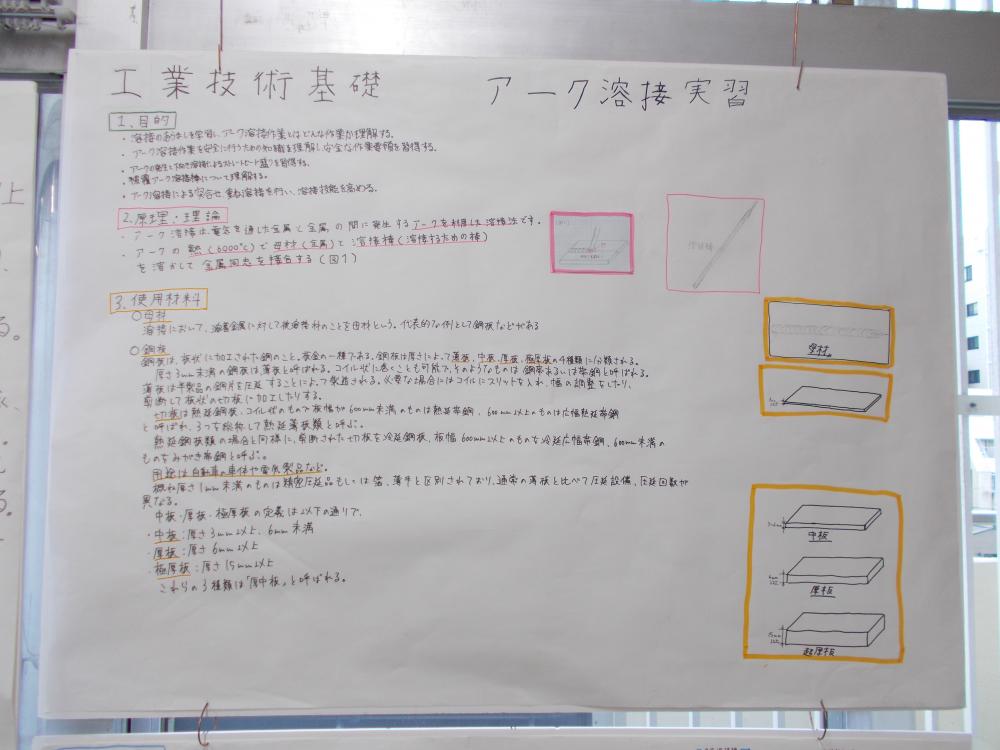 工業技術基礎 アーク溶接実習
1.目的
・溶接のあらましを学習し、アーク溶接作業とはどんな作業か理解する。
・アーク溶接作業を安全に行うための知識を理解し、安全な作業要領を習得する。
・アークの発生と下向き溶接によるストレートビード盛りを習得する。
・被覆アーク溶接棒について理解する。
・アーク溶接による突合せ、重ね溶接を行い、溶接技能を高める。
2.原理・理論
・アーク溶接は、電気を通した金属と金属の間に発生するアークを利用した溶接法です。
・アークの熱(6000℃)で母材(金属)と溶接棒(溶接するための棒)
を溶かして金属同志を接合する(図1)
溶接棒
3.使用材料
○母材
溶接において、溶着金属に対して被溶接材のことを母材という。代表的な例として鋼板などがある
母材
○鋼板
鋼板は、板状に加工された鋼のこと。板金の一種である。鋼板は厚さによって薄板、中板、厚板、極厚板の4種類に分類される。
厚さ3mm未満の鋼板は薄板と呼ばれる。コイル状に巻くことも可能で、そのようなものは鋼帯あるいは帯鋼と呼ばれる。
薄板は半製品の鋼片を圧延することによって製造される。必要な場合にはコイルにスリットを入れ、幅の調整をしたり、
剪断して板状の切板に加工したりする。
切板は熱延鋼板、コイル状のもので板幅が600mm未満のものは熱延帯鋼、600mm以上のものは広幅熱延帯鋼
と呼ばれ、3つを総称して熱延薄板類と呼ぶ。
熱延鋼板類の場合と同様に、剪断された切板を冷延鋼板、板幅600mm以上のものを冷延広幅帯鋼、600mm未満の
ものをみがき帯鋼と呼ぶ。
用途は自動車の車体や電気製品など。
概ね厚さ1mm未満のものは精密圧延品もしくは箔、薄手と区別されており、通常の薄板と比べて圧延設備、圧延回数が
異なる。
中板・厚板・極厚板の定義は以下の通りで、
・中板:厚さ3mm以上、6mm未満
・厚板:厚さ6mm以上
・極厚板:厚さ15mm以上
これらの3種類は「厚中板」と呼ばれる。
中板
厚板
超厚板